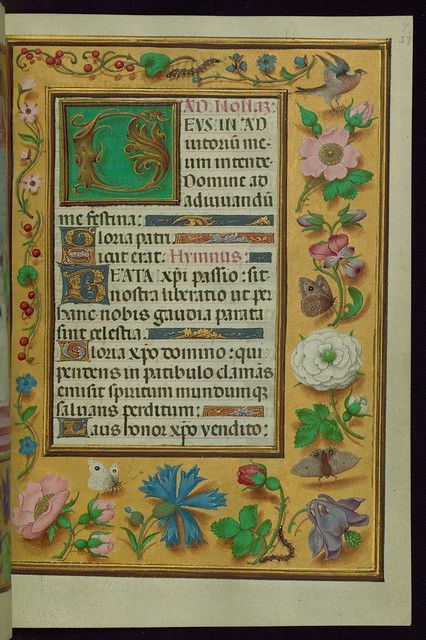 AD NONAS:
DEUS IN AD
iutorium me-
um intende
Domine ad
adiuuandū
me festina:
Gloria patri
Sicut erat: Hymnus:
BEATA xp̄i passio: sit
nostra liberatio ut per
hanc nobis gaudia parata
sint celestia
Gloria xp̄o domino: qui
pendens in patibulo clamās
emisit spiritum mundumq
saluans perditum:
Laus honor xp̄o vendito:
57